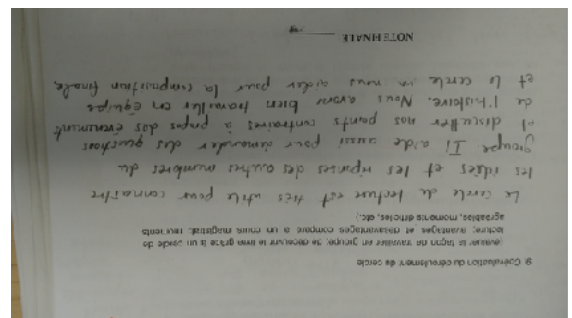 9. Coévaluation du déroulement de cercle
(évaluer la façon de travailler en groupe, de découvrir le livre grâce à un cercle de
lecture; avantages et désavantages comparé à un cours magistral; moments
agréables, moments difficiles, etc.)
Le cercle de lecture est très utile pour connaître
les idées et les réponses des autres membres du
groupe Il aide aussi pour demander des questions
et discuter nos points contraires à propos des événement
de l'histoire. Nous avons bien travailler en équipe
et le cercle va nous aider pour la composition finale.
NOTE FINALE